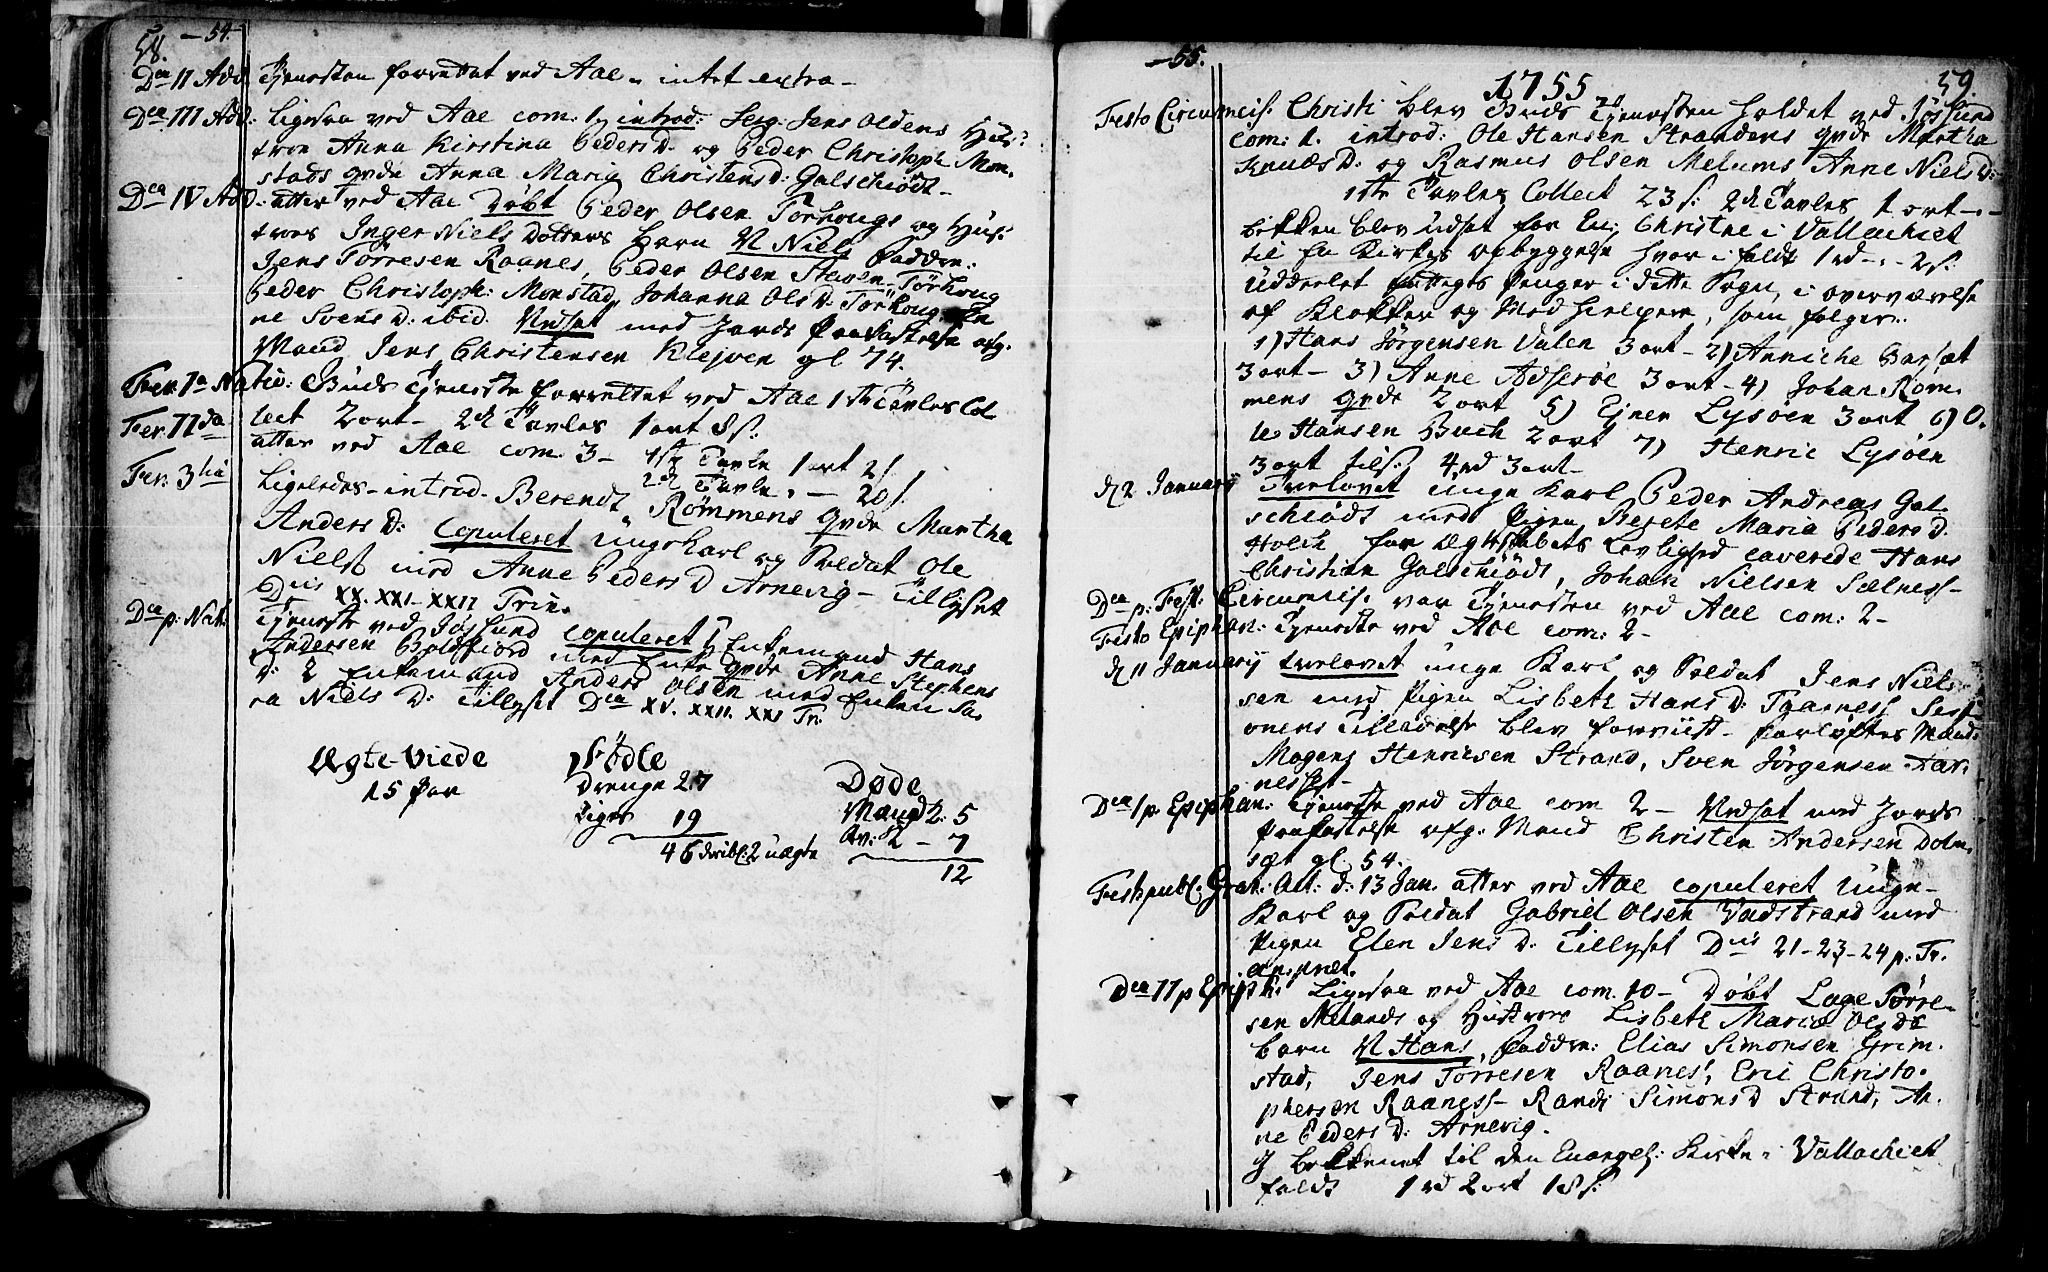 58. — 54.
Dca II Adv. Tjenesten forrettet ved Aae – intet extra –
Dca III Adv: Ligesaa ved Aae com: 1 introd: Serg: Jens Oldens Hus-
troe Anna Kirstina PedersD. og Peder Christoph: Mon-
stads qvde Anna Maria ChristensD: Galschiødt –
Dca IV Adv: atter ved Aae Døbt Peder Olsen Tørhougs og Hus-
troes Inger Niels Dotters barn N Niels Faddere:
Jens Tørresen Raanes, Peder Olsen Tørhoug
Peder Christoph: Monstad, Johanna OlsD. Tørhoug
ne SvensD: ibid. Nedsat med Jords Paakastelse afg:
Mand Jens Christensen Klejven gl 74.
Fer. 1a Nativ: Guds Tjeneste forrettet ved Aae 1ste Tavles Col-
lect 2 ort – 2den Tavles 1 ort 8 s:
Fer. IIda atter ved Aae com. 3 – 1ste Tavle 1 ort 2 s.
2de Tavle – 20 s.
Fer. 3tia Ligeledes – introd. Berendt Rømmens qvde Martha
AndersD: Copuleret Ungekarl og Soldat Ole
Niels: med Anne PedersD Arnevig – Tillyset
Dnis XX. XXI – XXII Trin.
Dca p: Nat. Tjeneste ved Jøssund copuleret 1 Enkemand Hans
Andersen Boldfiord med Enke qvde Anne Stephens
D: 2 Enkemand Anders Olsen med Enken Sa-
ra Niels D: Tillyset Dca XX. XXII. XXI Tr:
Ægte-Viede
15 Par
Fødte
Drenge 27
Piger 19
46 deribl: 2 uægte
Døde
Mænd 2: 5
Qv: K – 7
12
– 55. 59.
1755
Festo Circumcis: Christi blev Guds Tjenesten holdet ved Jøssund
com: 1. introd: Ole Hansen Strandens qvde Martha
KnudsD: og Rasmus Olsen Melums Anne NielsD:
1ste Tavles Collect 23 s: 2de Tavles 1 ort –
bekken blev udsat for En: Christne i Vallachiet
til en Kirkes opbyggelse hvor i faldt 1 rd – 2 s:
Udderlet fattiges Penger i dette Sogn, i overværelse
af Klokker og Medhielpere, som følger:
1) Hans Jørgensen Valen 3 ort – 2) Anniche Barsæt
3 ort – 3) Anne Adserøe 3 ort – 4) Johan Røm-
mens qvde 2 ort 5) Ejner Lysøen 3 ort 6) O-
le Hansen Buch 2 ort 7) Henric Lysøen
3 ort tils: 4 rd 3 ort –
d 2 January Trolovet unge Karl Peder Andreas Gal-
schiødt med Pigen Berete Maria PedersD.
Holck for Ægteskabets Lovlighed caverede Hans
Christian Galschiødt, Johan Nielsen Sælness –
Dca p: Fest: Circumcis: var Tjenesten ved Aae com: 2 –
Festo Epiphan: Tjeneste ved Aae com: 2 –
d 11 January trolovet unge Karl og Soldat Jens Niel-
sen med Pigen Lisbeth HansD: Tgarness Sessi-
onens Tilladelse blev foreviist – Forløftes Mænd:
Mogens Henricsen Strand, Sven Jørgensen Tar-
nesset –
Dca 1 p: Epiphan: Tjeneste ved Aae com 2 – Nedsat med Jords
Paakastelse afg: Mand Christen Andersen Dolm-
sæt gl 54.
Festo publ: Grat: Act: d: 13 Jan. atter ved Aae copuleret Unge-
Karl og Soldat Gabriel Olsen Vadstrand med
Pigen Elen JensD: Tillyset Dnis 21-23-24 p: Tr.
an: præt.
Dca II p Epiph: Ligesaa ved Aae com. 10 – Døbt Lage Tørre-
sen Melands og Hustroes Lisbeth Maria OlsDs
barn N Hans, Faddere: Elias Simonsen Grim-
stad, Jens Tørresen Raaness, Eric Christo-
phersen Raaness – Randi SimonsD Strand, An-
ne PedersD: Arnevig.
J bekkenet til den Evangel: Kirke i Vallachiet
faldt 1 rd 2 ort 18 s: